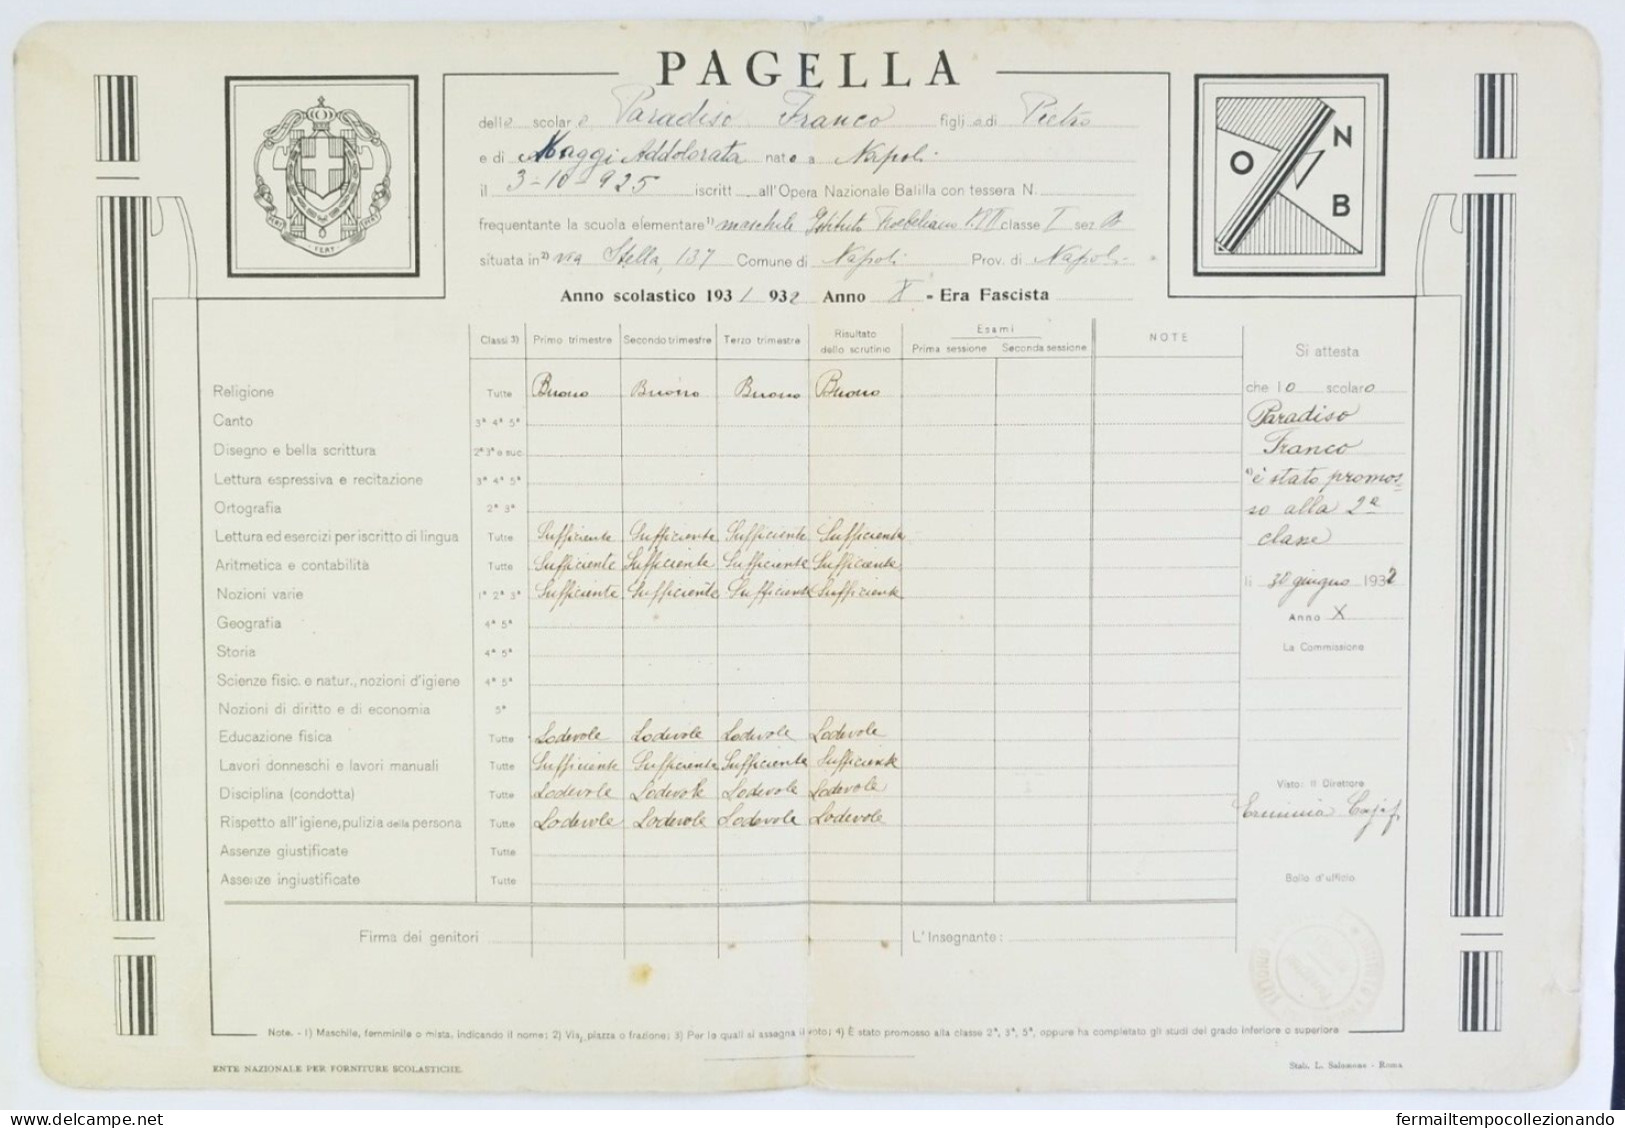 PAGELLA
dello scolare Paradiso Franco figlio di Pietro
e di Maggi Addolorata nato a Napoli
il 3-10-925 iscritt all'Opera Nazionale Balilla con tessera N.
frequentante la scuola elementare 1) maschile Istituto classe I sez. B
situata in 2) via Stella, 137 Comune di Napoli Prov. di Napoli
Anno scolastico 1931/932 Anno X - Era Fascista
O N B
FERT
Classi 3) Primo trimestre Secondo trimestre Terzo trimestre Risultato dello scrutinio Esami Prima sessione Seconda sessione NOTE
Religione Tutte Buono Buono Buono Buono
Canto 3ª 4ª 5ª
Disegno e bella scrittura 2ª 3ª e suc.
Lettura espressiva e recitazione 3ª 4ª 5ª
Ortografia 2ª 3ª
Lettura ed esercizi per iscritto di lingua Tutte Sufficiente Sufficiente Sufficiente Sufficiente
Aritmetica e contabilità Tutte Sufficiente Sufficiente Sufficiente Sufficiente
Nozioni varie 1ª 2ª 3ª Sufficiente Sufficiente Sufficiente Sufficiente
Geografia 4ª 5ª
Storia 4ª 5ª
Scienze fisic. e natur., nozioni d'igiene 4ª 5ª
Nozioni di diritto e di economia 5ª
Educazione fisica Tutte Lodevole Lodevole Lodevole Lodevole
Lavori donneschi e lavori manuali Tutte Sufficiente Sufficiente Sufficiente Sufficiente
Disciplina (condotta) Tutte Lodevole Lodevole Lodevole Lodevole
Rispetto all'igiene, pulizia della persona Tutte Lodevole Lodevole Lodevole Lodevole
Assenze giustificate Tutte
Assenze ingiustificate Tutte
Firma dei genitori
L'Insegnante:
Si attesta
che lo scolaro
Paradiso
Franco
4) è stato promos-
so alla 2ª
classe
li 30 giugno 1932
Anno X
La Commissione
Visto: Il Direttore
Erminia
Bollo d'ufficio
Note. - 1) Maschile, femminile o mista, indicando il nome; 2) Via, piazza o frazione; 3) Per le quali si assegna il voto; 4) È stato promosso alla classe 2ª, 3ª, 5ª, oppure ha completato gli studi del grado inferiore o superiore
ENTE NAZIONALE PER FORNITURE SCOLASTICHE.
Stab. L. Salomone - Roma
fermailtempocollezionando